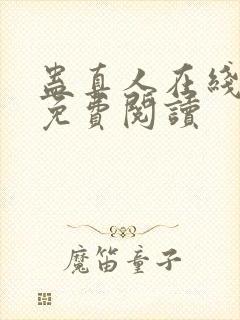 蛊真人在綫
免費閱讀
魔笛童子